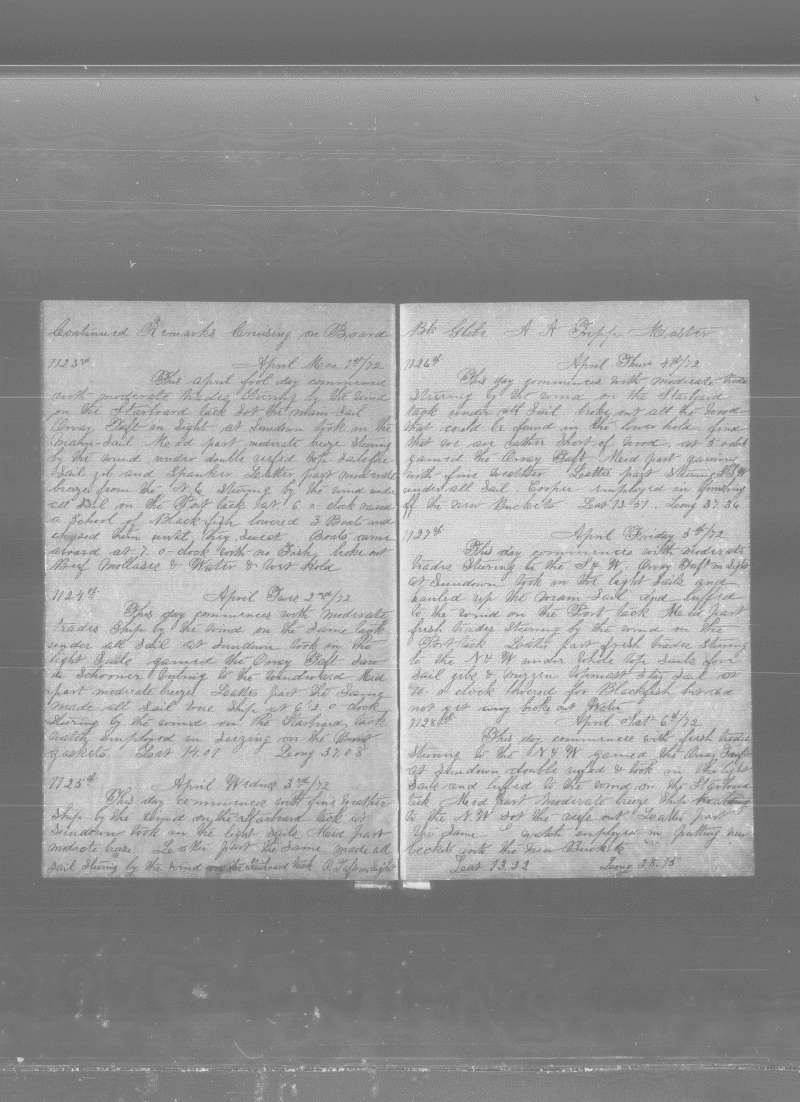 Continued Remarks Cruising on Board
1123rd April Mon 1st/72
This april fool day commences
with moderate trades Steering by the wind
on the Starboard tack Sot the main Sail
Orray Taft in Sight at Sundown took in the
main Sail Midd part moderate breeze Steering
by the wind under double reefed top Sails fore
Sail jib and Spanker Latter part moderate
breeze from the N.E. Steering by the wind under
all Sail on the Port tack at 6 o clock raised
a School of Blackfish lowered 3 Boats and
chased them until Boats came
aboard at 7 o clock with no Fish, broke out
Beef Mollasis & Water & Hold
1124th April Tues 2nd/72
This day commences with moderate
trades Ship by the wind on the Same tack
under all Sail at Sundown took in the
light Sails gamed the Orray Taft Saw
a Schooner to the windward Midd
part moderate breeze Latter part the Same
made all Sail wore Ship at 6 o clock
Steering by the wind on the Starboard tack
watch employed in Seizing on the
gaskets Lat 14.01 Long 37.08
1125th April Wednes 3rd/72
This day commences with fine weather
Ship by the wind on the Starboard tack at
Sundown took in the light Sails Midd part
modrate breeze Latter part the Same made all
sail Stering by the wind on the Starboard tack O. Taft in Sight
Bk Globe A A Tripp Master
1126th April Thurs 4th/72
This day commences with moderate trades
Steering by the wind on the Starbord
tack under all Sail broke out all the wood
that could be found in the lower hold find
that we are rather Short of wood at 3 o clock
gamed the Orray Taft Midd part gaming
with fine weather Latter part Steering
under all Sail Cooper employed in finishing
off the new Buckets Lat 13.51 Long 37.36
1127th April Friday 5th/72
This day commences with moderate
trades Steering to the S & W Orray Taft in Sight
at Sundown took in the light Sails and
hauled up the main Sail and luffed
to the wind on the Port tack Midd part
fresh trades Steering by the wind on the
Port tack Latter part fresh trades Steering
to the N & W under whole top Sails fore
Sail jibe & mizzen topmast Stay Sail at
10 o clock lowered for Blackfish but did
not get any broke out Water
1128th April Sat 6th/72
This day commences with fresh trades
Steering to the N & W gamed the Orray Taft
at Sundown double reefed & took in the light
Sails and luffed to the wind on the Starbord
tack Midd part moderate breeze Ship heading
to the N.W. Sot the reefs out Latter part
the Same watch employed in putting new
beckits into the new Buckets
Lat 13.32 Long 38.15